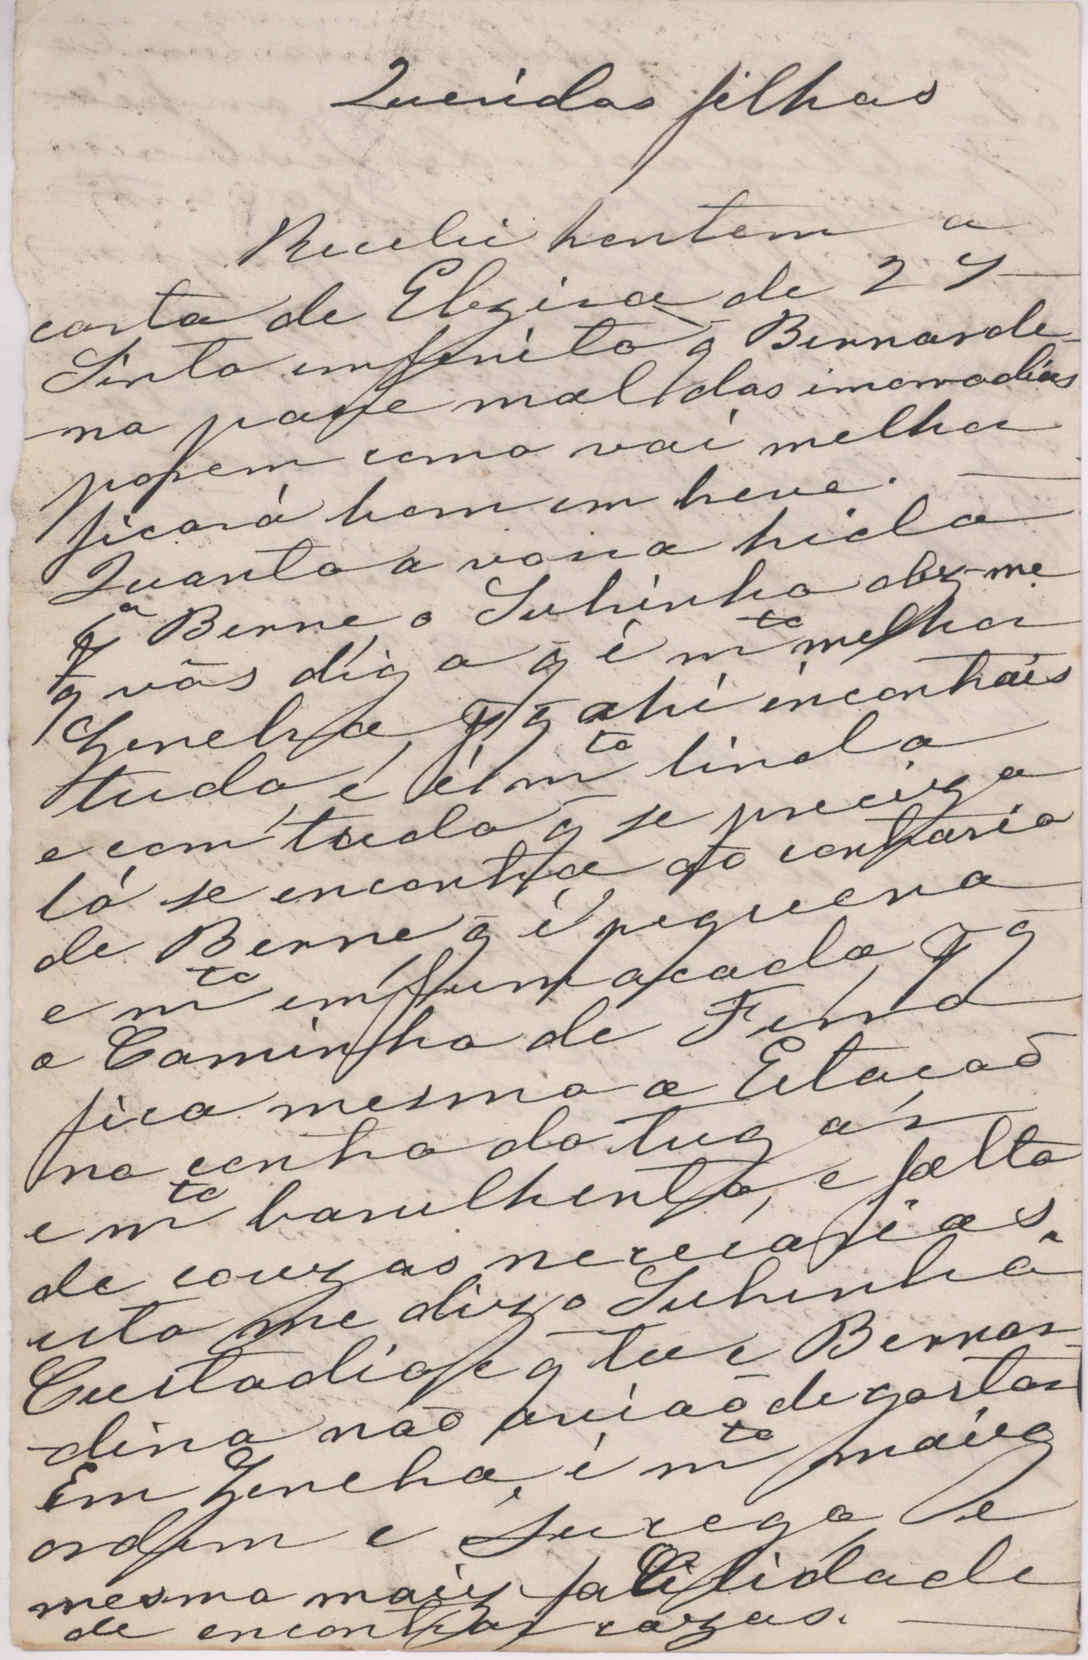 Queridas filhas
Recebi hontem a
carta de Elzira de 27
Sinto imfinito q̃ Bernarde-
-na passe mal das incomodios
porem como vai melhor
ficará bom em breve.
Quanto a vossa hida
pª Berne o Juhinho diz-me
q̃ vos diga q̃ é mto melhor
Genebra, p q̃ ahi incontrais
tudo, é é mto linda
e com tudo q̃ se preciza
lá se encontra ao contrario
de Berne q̃ é pequena
e mto imfumaçada, p q̃
o Caminho de Ferro
fica mesmo a Estacaõ
no centro do lugár
e mto barulhento, e falta
de couzas neceçárias
isto me diz o Juhinho
Custodio, e q̃ tu e Bernar-
-dina naõ aviaõ de gostar
Em Genebra, é mto maiz
ordem e Sucego, e
mesmo maiz facilidade
de encontrar cazas.